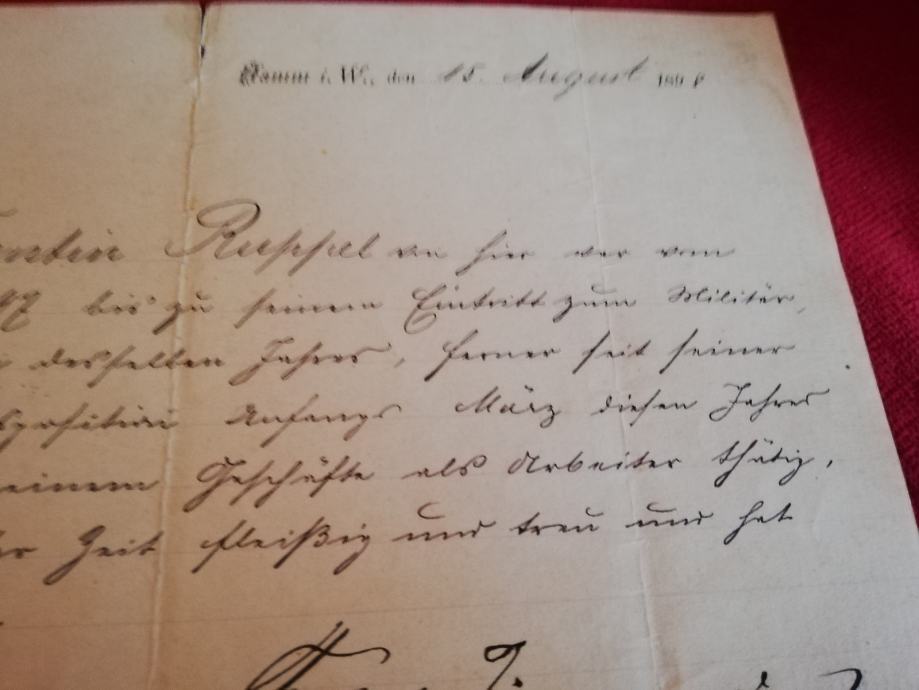 Hamm i. W., den 15. August 189
Ruppel von hier war vom
bis zu seinem Eintritt zum Militär,
desselben Jahres, ferner seit seiner
Anfangs März diesen Jahres
meinem Geschäfte als Arbeiter thätig,
Zeit fleißig und treu und hat